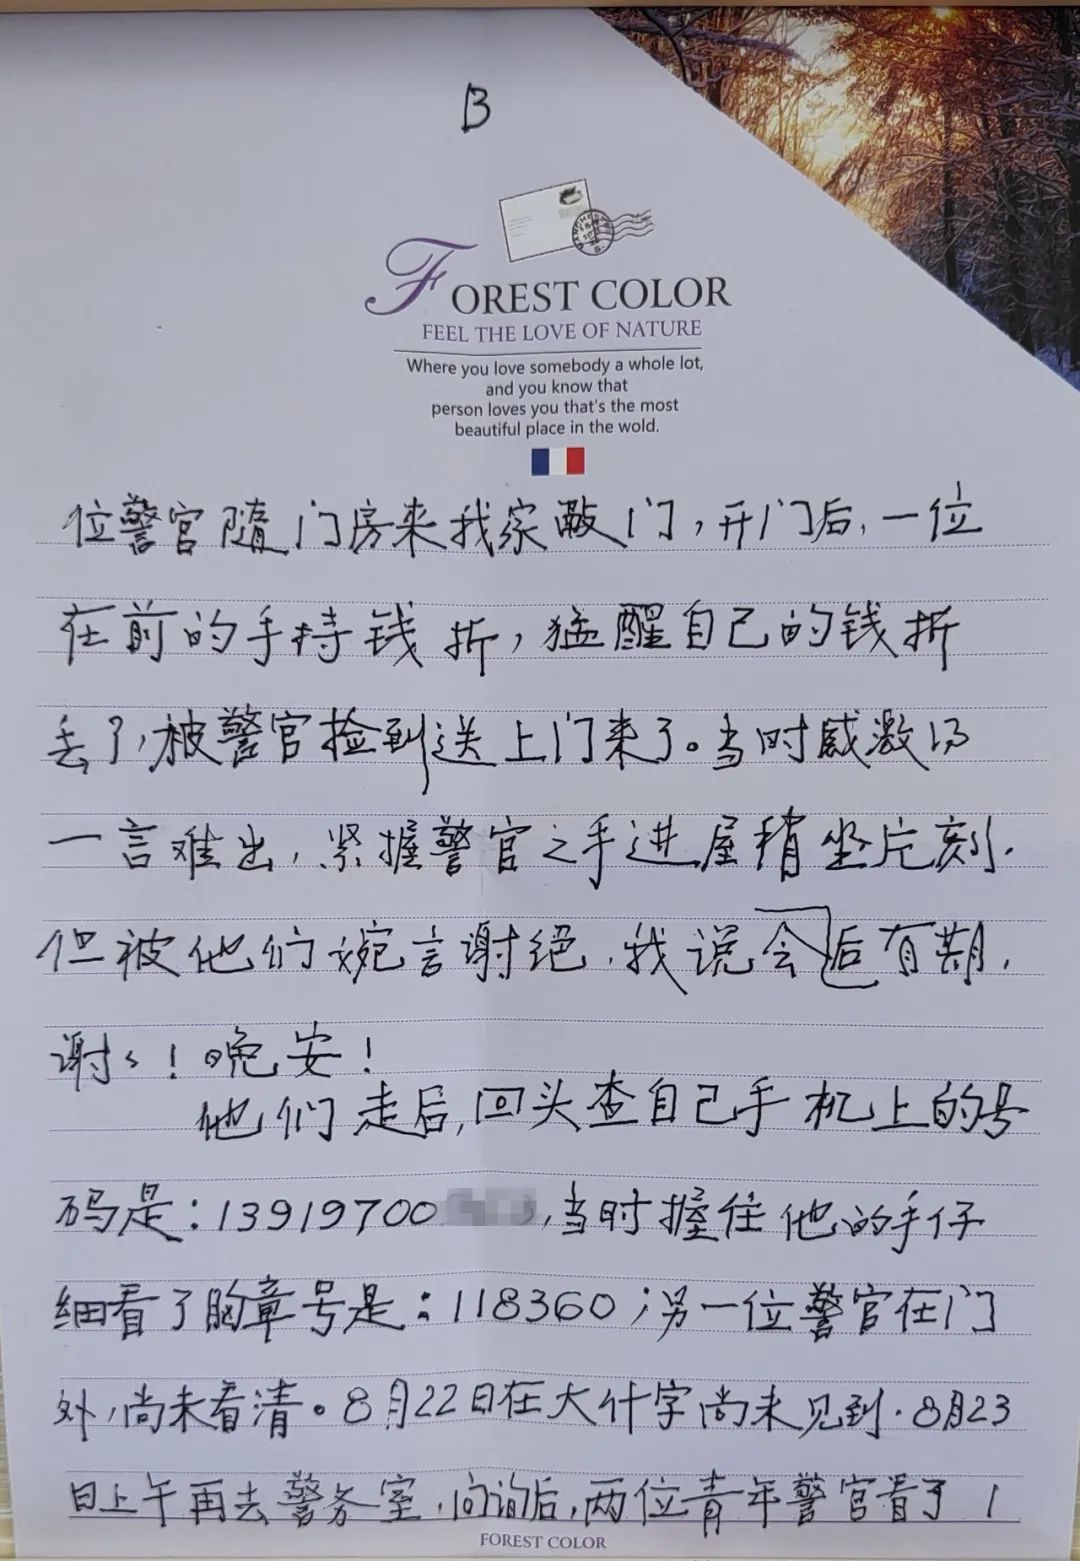 B
FOREST COLOR
FEEL THE LOVE OF NATURE
Where you love somebody a whole lot,
and you know that
person loves you that's the most
beautiful place in the wold.
位警官随门房来我家敲门，开门后，一位
在前的手持钱折，猛醒自己的钱折
丢了，被警官捡到送上门来了。当时感激的
一言难出，紧握警官之手进屋稍坐片刻.
但被他们婉言谢绝.我说会后有期，
谢々！晚安！
他们走后，回头查自己手机上的号
码是：13919700，当时握住他的手仔
细看了胸章号是：118360；另一位警官在门
外，尚未看清。8月22日在大什字尚未见到.8月23
日上午再去警务室，问询后，两位青年警官看了
FOREST COLOR